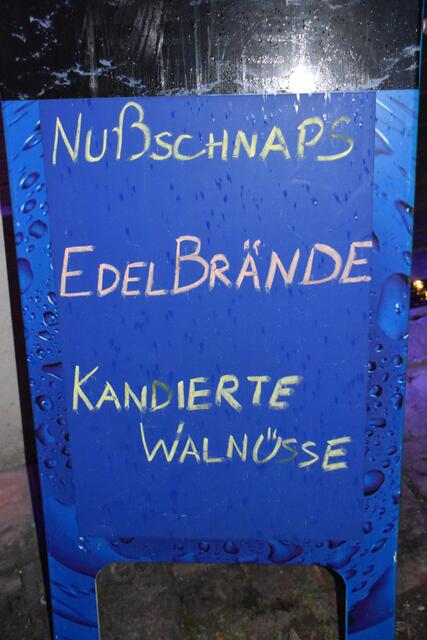 NUßSCHNAPS
EDELBRÄNDE
KANDIERTE
WALNÜSSE